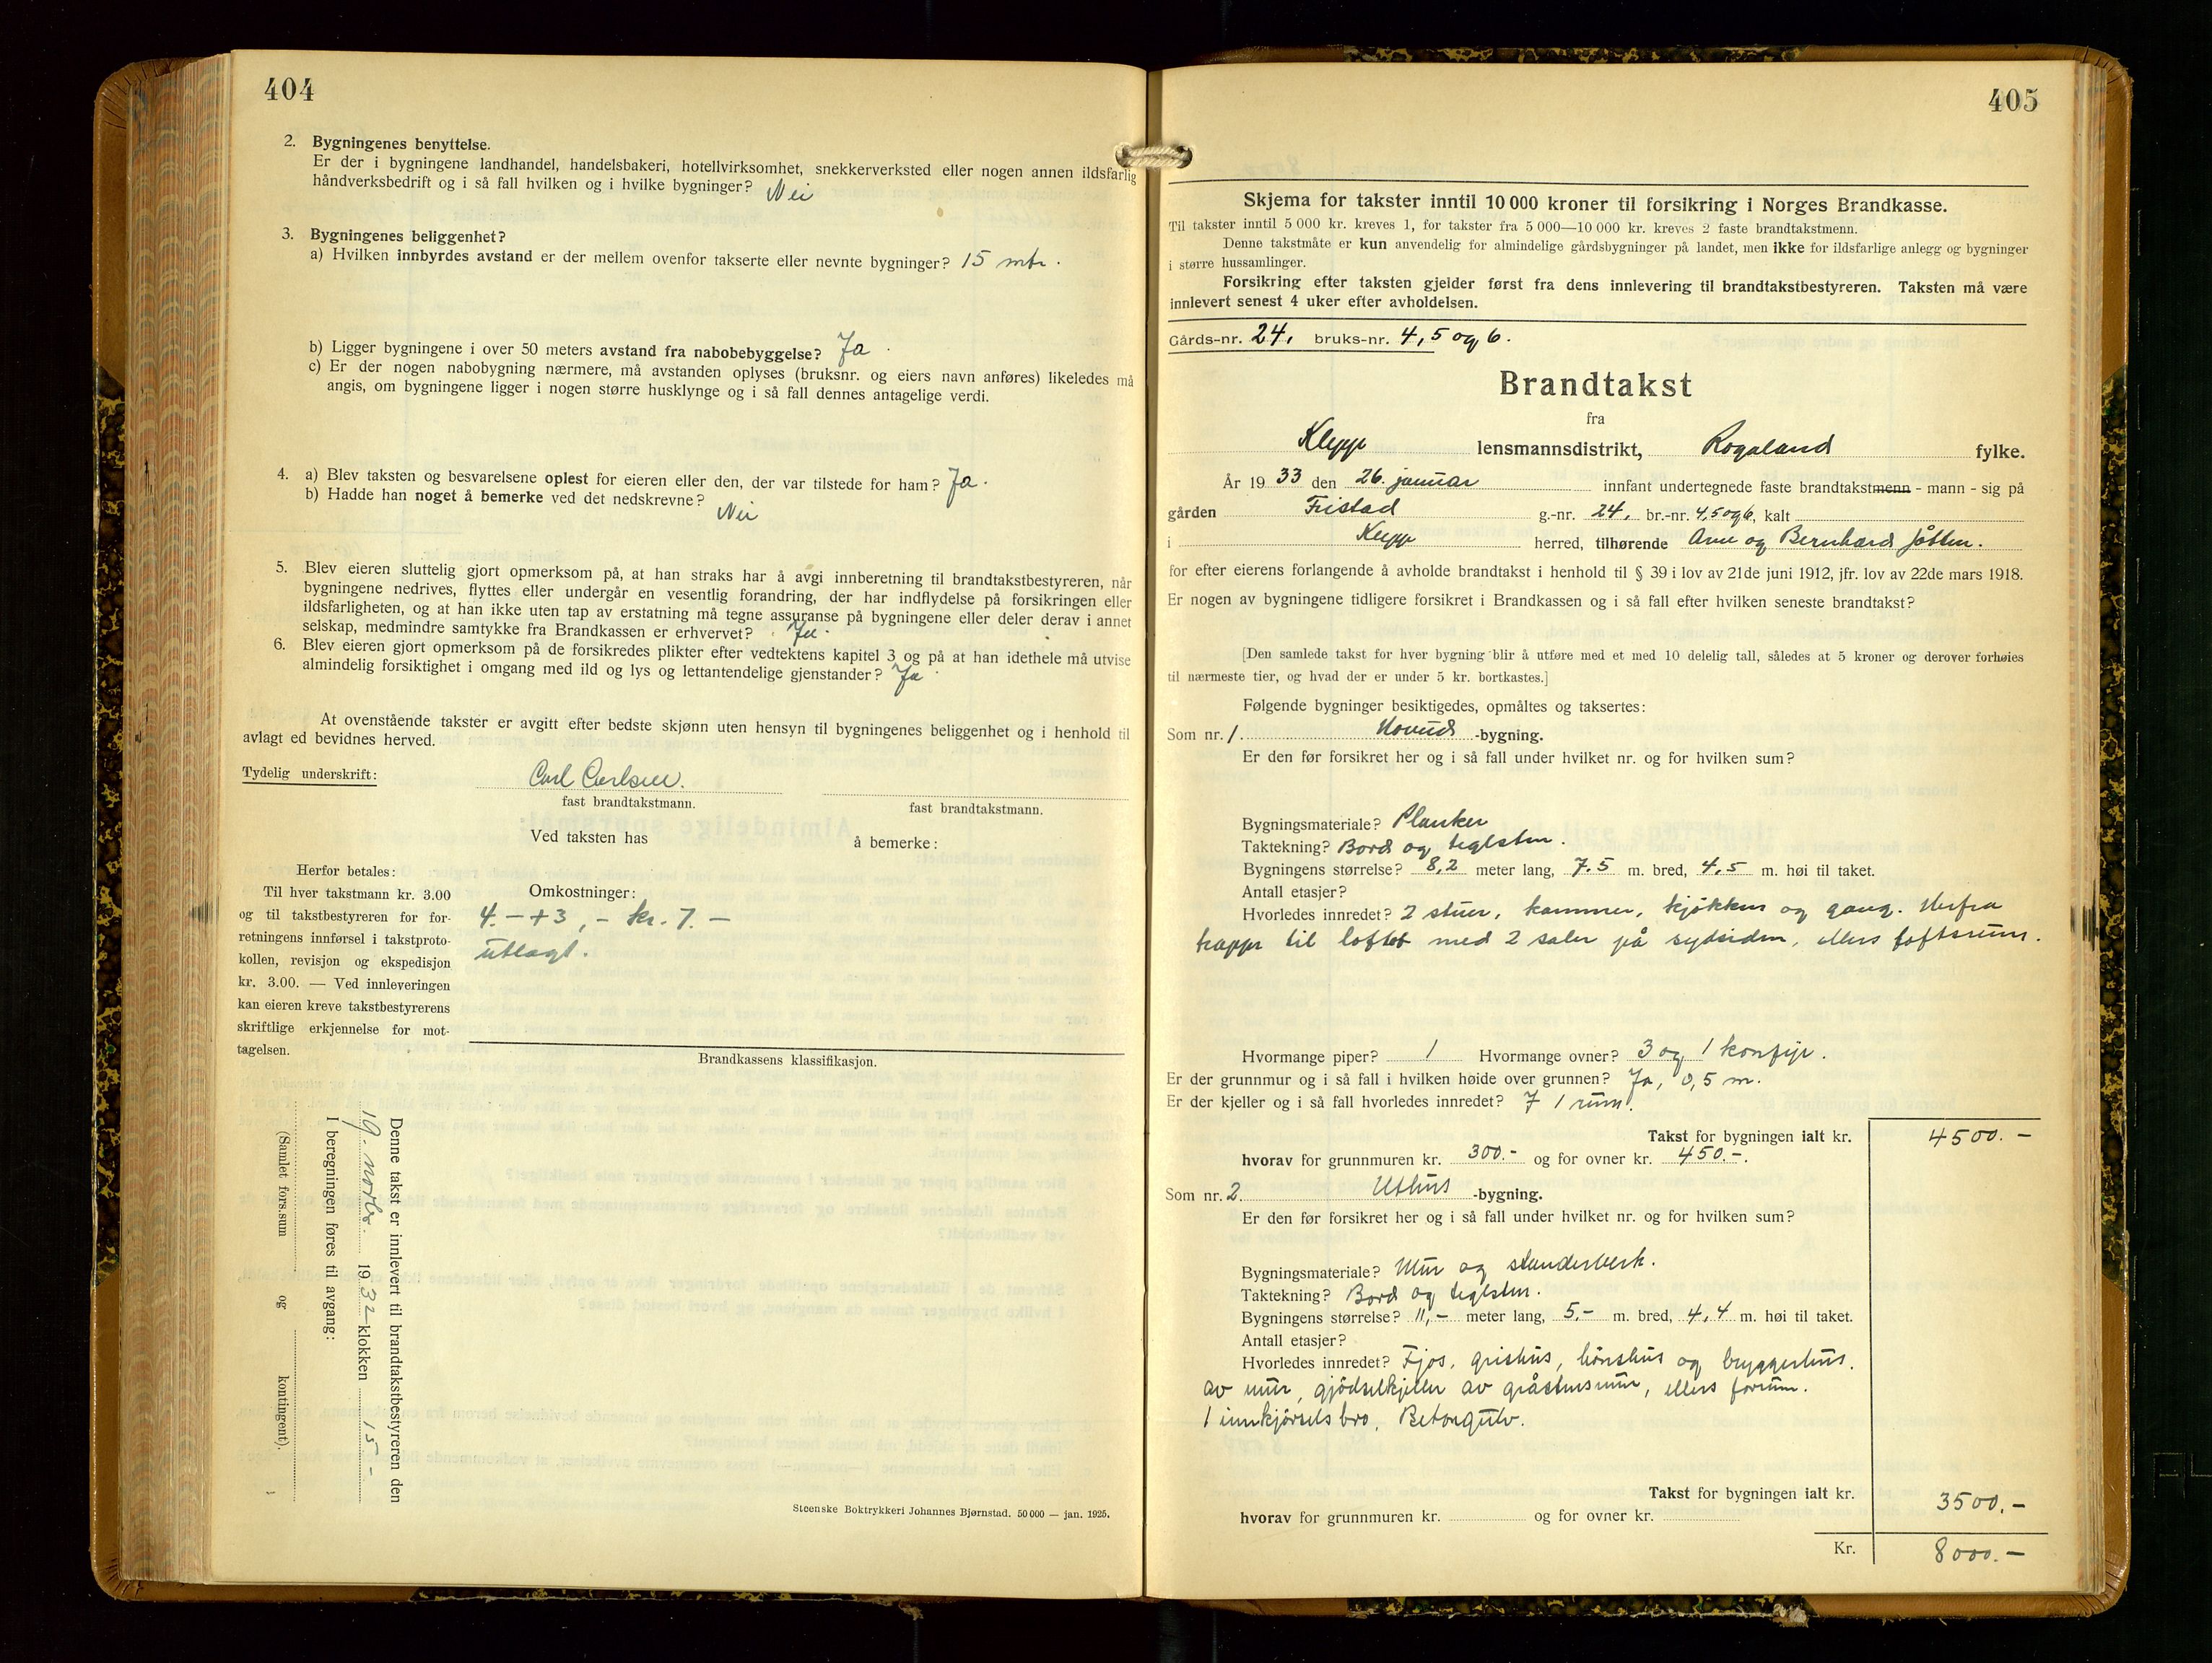 404
2. Bygningenes benyttelse.
Er der i bygningene landhandel, handelsbakeri, hotellvirksomhet, snekkerverksted eller nogen annen ildsfarlig
håndverksbedrift og i så fall hvilken og i hvilke bygninger? Nei
3. Bygningenes beliggenhet?
a) Hvilken innbyrdes avstand er der mellem ovenfor takserte eller nevnte bygninger? 15 mtr.
b) Ligger bygningene i over 50 meters avstand fra nabobebyggelse? Ja
c) Er der nogen nabobygning nærmere, må avstanden oplyses (bruksnr. og eiers navn anføres) likeledes må
angis, om bygningene ligger i nogen større husklynge og i så fall dennes antagelige verdi.
4. a) Blev taksten og besvarelsene oplest for eieren eller den, der var tilstede for ham? Ja.
b) Hadde han noget å bemerke ved det nedskrevne?
Nei
5. Blev eieren sluttelig gjort opmerksom på, at han straks har å avgi innberetning til brandtakstbestyreren, når
bygningene nedrives, flyttes eller undergår en vesentlig forandring, der har indflydelse på forsikringen eller
ildsfarligheten, og at han ikke uten tap av erstatning må tegne assuranse på bygningene eller deler derav i annet
selskap, medmindre samtykke fra Brandkassen er erhvervet? Ja.
6. Blev eieren gjort opmerksom på de forsikredes plikter efter vedtektens kapitel 3 og på at han idethele må utvise
almindelig forsiktighet i omgang med ild og lys og lettantendelige gjenstander? Ja
At ovenstående takster er avgitt efter bedste skjønn uten hensyn til bygningenes beliggenhet og i henhold til
avlagt ed bevidnes herved.
Tydelig underskrift: Carl Carlsen.
fast brandtakstmann. fast brandtakstmann.
Ved taksten has å bemerke:
Herfor betales:
Til hver takstmann kr. 3.00
og til takstbestyreren for for-
retningens innførsel i takstproto-
kollen, revisjon og ekspedisjon
kr. 3.00. — Ved innleveringen
kan eieren kreve takstbestyrerens
skriftlige erkjennelse for mot-
tagelsen.
Omkostninger:
4.- + 3,- kr. 7.-
utlagt.
Brandkassens klassifikasjon.
Denne takst er innlevert til brandtakstbestyreren den
19. novbr. 1932 klokken 15-
I beregningen føres til avgang:
(Samlet fors.sum og kontingent).
Steenske Boktrykkeri Johannes Bjørnstad. 50 000 — jan. 1925.
405
Skjema for takster inntil 10 000 kroner til forsikring i Norges Brandkasse.
Til takster inntil 5 000 kr. kreves 1, for takster fra 5 000—10 000 kr. kreves 2 faste brandtakstmenn.
Denne takstmåte er kun anvendelig for almindelige gårdsbygninger på landet, men ikke for ildsfarlige anlegg og bygninger
i større hussamlinger.
Forsikring efter taksten gjelder først fra dens innlevering til brandtakstbestyreren. Taksten må være
innlevert senest 4 uker efter avholdelsen.
Gårds-nr. 24, bruks-nr. 4,5 og 6.
Brandtakst
fra
Klepp lensmannsdistrikt, Rogaland fylke.
År 1933 den 26. januar innfant undertegnede faste brandtakstmenn - mann - sig på
gården Fristad g.-nr. 24, br.-nr. 4,5 og 6, kalt
i Klepp herred, tilhørende Arne og Bernhard Jåtten.
for efter eierens forlangende å avholde brandtakst i henhold til § 39 i lov av 21de juni 1912, jfr. lov av 22de mars 1918.
Er nogen av bygningene tidligere forsikret i Brandkassen og i så fall efter hvilken seneste brandtakst?
[Den samlede takst for hver bygning blir å utføre med et med 10 delelig tall, således at 5 kroner og derover forhøies
til nærmeste tier, og hvad der er under 5 kr. bortkastes.]
Følgende bygninger besiktigedes, opmåltes og taksertes:
Som nr. 1. Hovud -bygning.
Er den før forsikret her og i så fall under hvilket nr. og for hvilken sum?
Bygningsmateriale? Planker
Taktekning? Bord og teglsten.
Bygningens størrelse? 8,2 meter lang, 7.5 m. bred, 4,5 m. høi til taket.
Antall etasjer?
Hvorledes innredet? 2 stuer, kammer, kjøkken og gang. Herfra
trapper til loftet med 2 saler på sydsiden, ellers loftsrum.
Hvormange piper? 1 Hvormange ovner? 3 og 1 komfyr.
Er der grunnmur og i så fall i hvilken høide over grunnen? Ja, 0,5 m.
Er der kjeller og i så fall hvorledes innredet? 7 1 rum.
Takst for bygningen ialt kr. 4500.-
hvorav for grunnmuren kr. 300.- og for ovner kr. 450.-.
Som nr. 2. Uthus -bygning.
Er den før forsikret her og i så fall under hvilket nr. og for hvilken sum?
Bygningsmateriale? Mur og standerverk.
Taktekning? Bord og teglsten.
Bygningens størrelse? 11,- meter lang, 5,- m. bred, 4,4 m. høi til taket.
Antall etasjer?
Hvorledes innredet? Fjos, grishus, hönshus og bryggerhus.
av mur, gjödselkjeller av gråstensmur, ellers forrum.
1 innkjörselsbro. Betongulv.
Takst for bygningen ialt kr. 3500.-
hvorav for grunnmuren kr. og for ovner kr.
Kr. 8000.-